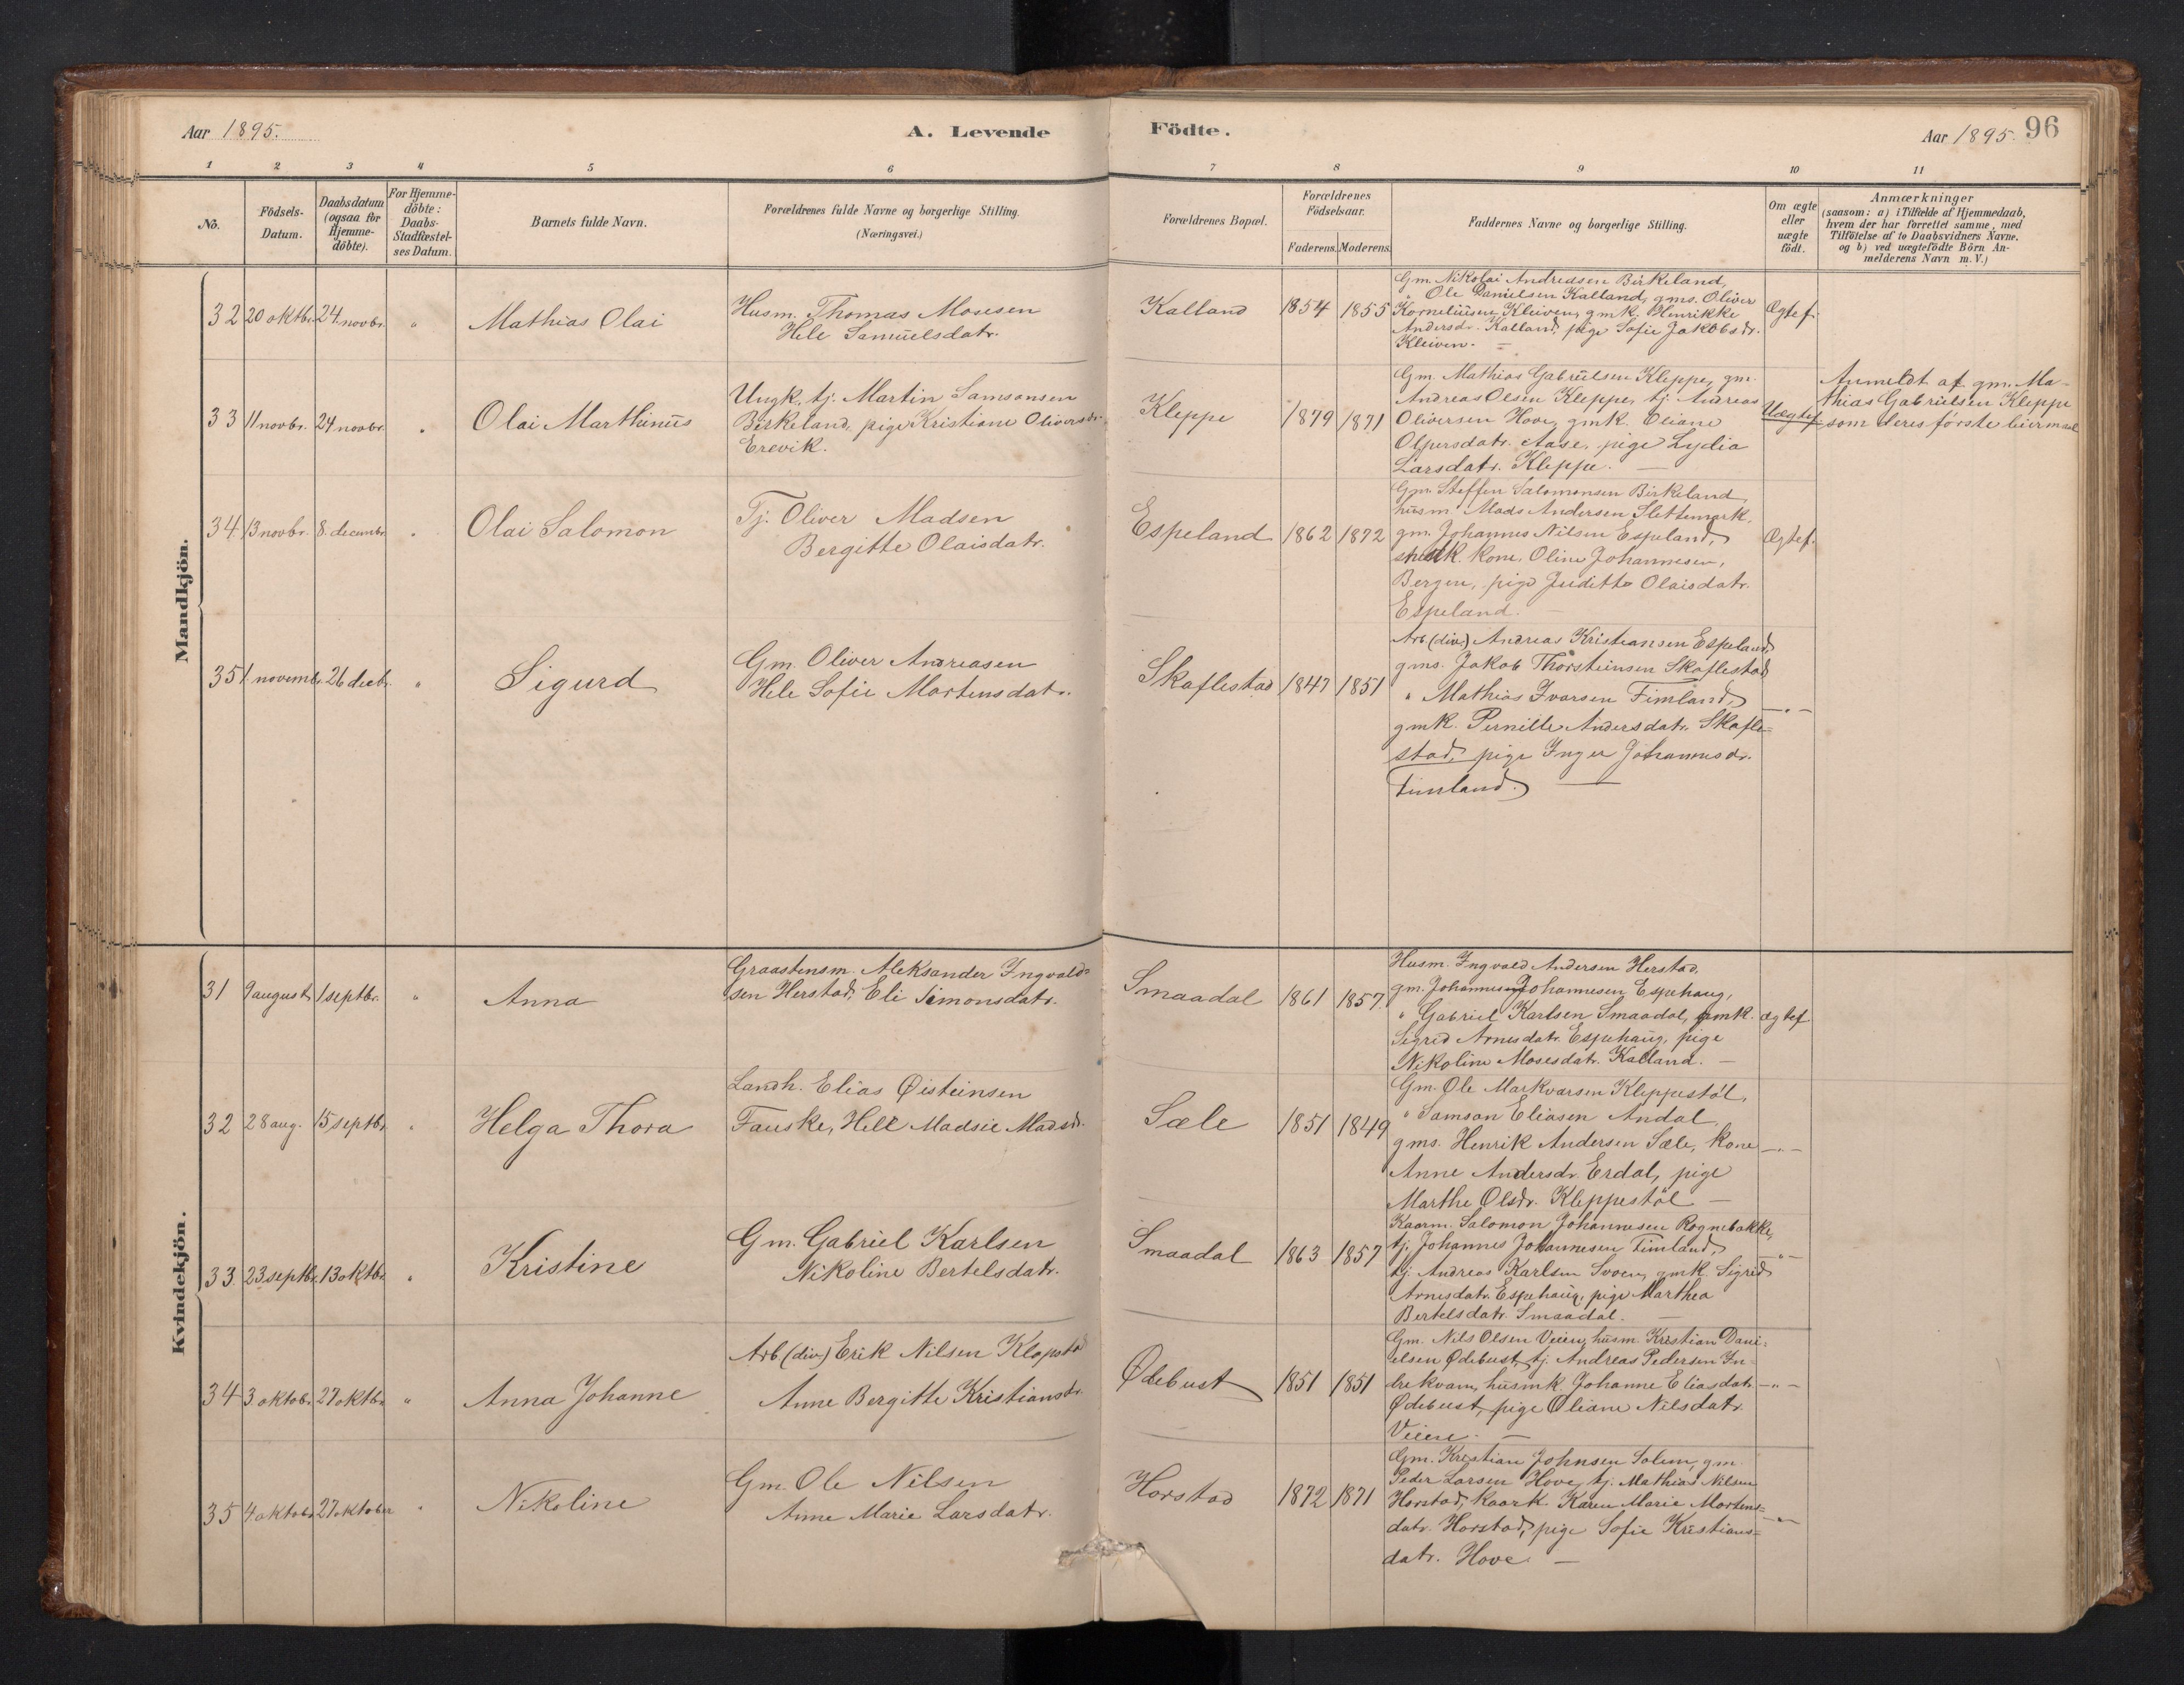 Aar 1895.
A. Levende Födte.
Aar 1895. 96
1 2 3 4 5 6 7 8 9 10 11
No.
Födsels-Datum.
Daabsdatum (ogsaa för Hjemmedöbte).
For Hjemmedöbte: Daabs-Stadfæstelses Datum.
Barnets fulde Navn.
Forældrenes fulde Navne og borgerlige Stilling.
(Næringsvei.)
Forældrenes Bopæl.
Forældrenes Födselsaar.
Faderens. Moderens.
Faddernes Navne og borgerlige Stilling.
Om ægte eller uægte födt.
Anmærkninger
(saasom: a) i Tilfælde af Hjemmedaab,
hvem der har forrettet samme, med
Tilföielse af to Daabsvidners Navne.
og b) ved uægtefödte Börn Anmelderens Navn m. V.)
Mandkjön.
32 20 oktbr. 24 novbr. " Mathias Olai
Husm. Thomas Mosesen
Hele Samuelsdatr.
Kalland 1854 1855
Gm. Nikolai Andreasen Birkeland,
" Ole Danielsen Kalland, gms. Oliver
Korneliusen Kleiven, gmk. Henrikke
Andersdr. Kalland, pige Sofie Jakobsdr.
Kleiven. —
Ægtef.
33 11 novbr. 24 novbr. " Olai Marthinus
Ungk. tj. Martin Samsonsen
Birkeland, pige Kristiane Oliversdr.
Erevik.
Kleppe 1879 1871
Gm. Mathias Gabrielsen Kleppe, gm.
Andreas Olsen Kleppe, tj. Andreas
Oliversen Hove, gmk. Oliane
Olpersdatr. Aase, pige Lydia
Larsdatr. Kleppe. —
Uægtef.
Anmeldt af gm. Ma-
thias Gabrielsen Kleppe
som deres første leiermaal
34 13 novbr. 8. decembr. " Olai Salomon
Tj. Oliver Madsen
Bergitte Olaisdatr.
Espeland 1862 1872
Gm. Steffen Salomonsen Birkeland,
husm. Mads Andersen Slettemark,
gm. Johannes Nilsen Espeland,
snedk. kone, Oline Johannesen,
Bergen, pige Juditte Olaisdatr.
Espeland. —
Ægtef.
35 1 novembr. 26 decbr. " Sigurd
Gm. Oliver Andreasen
Hele Sofie Mortensdatr.
Skaflestad 1847 1851
Arb (div) Andreas Kristiansen Espeland,
gms. Jakob Thorsteinsen Skaflestad
" Mathias Ivarsen Timland,
gmk. Pernille Andersdatr. Skafle-
stad, pige Inger Johannesdr.
Timland. —
—"—
Kvindekjön.
31 9 august 1 septbr. " Anna
Graastensm. Aleksander Ingvald-
sen Herstad, Eli Simonsdatr.
Smaadal 1861 1857
Husm. Ingvald Andersen Herstad,
gm. Johannes Johannesen Espehaug,
" Gabriel Karlsen Smaadal, gmk.
Sigrid Arnesdatr. Espehaug, pige
Nikoline Mosesdatr. Kalland. —
ægtef
32 28 aug. 15 septbr. " Helga Thora
Landh. Elias Øisteinsen
Fauske, Hell Madsie Madsd.
Sæle 1851 1849
Gm. Ole Markvarsen Kleppestöl,
" Samson Eliasen Andal,
gms. Henrik Andersen Sæle, kone
Anne Andersdr. Erdal, pige
Marthe Olsdr. Kleppestöl —
—"—
33 23 septbr. 13 oktbr. " Kristine
Gm. Gabriel Karlsen
Nikoline Bertelsdatr.
Smaadal 1863 1857
Kaarm. Salomon Johannesen Rognebakke,
tj. Johannes Johannesen Timland,
tj. Andreas Karlsen Svoen, gmk. Sigrid
Arnesdatr. Espehaug, pige Marthea
Bertelsdatr. Smaadal. —
—"—
34 3. oktobr. 27 oktbr. " Anna Johanne
Arb (div) Erik Nilsen Klopstad
Anne Bergitte Kristiansdr.
Ødebust 1851 1851
Gm. Nils Olsen Veien, husm. Kristian Dani-
elsen Ødebust, tj. Andreas Pedersen In-
drekvam, husmk. Johanne Eliasdatr.
Ødebust, pige Oliane Nilsdatr.
Veien. —
—"—
35 4 oktobr 27 oktober " Nikoline
Gm. Ole Nilsen
Anne Marie Larsdatr.
Horstad 1872 1871
Gm. Kristian Johnsen Solem, gm.
Peder Larsen Hove, tj. Mathias Nilsen
Horstad, kaark. Karen Marie Mortens-
datr. Horstad, pige Sofie Kristians-
datr. Hove. —
—"—